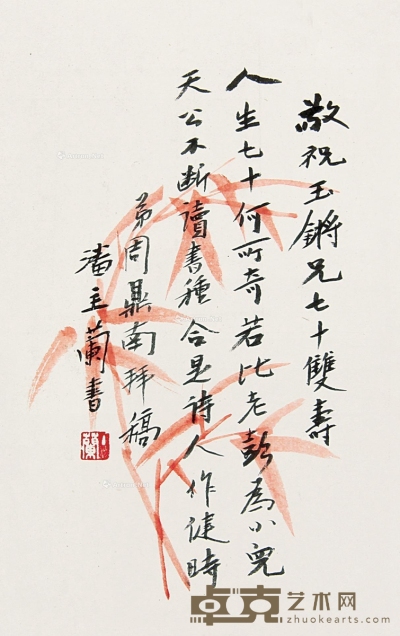 敬祝玉鏘兄七十雙壽
人生七十何所奇若比老彭為小兒
天公不斷讀書種合是詩人作健時
弟周鼎南拜稿
潘主蘭書
卓克艺术网
zhuokearts.com